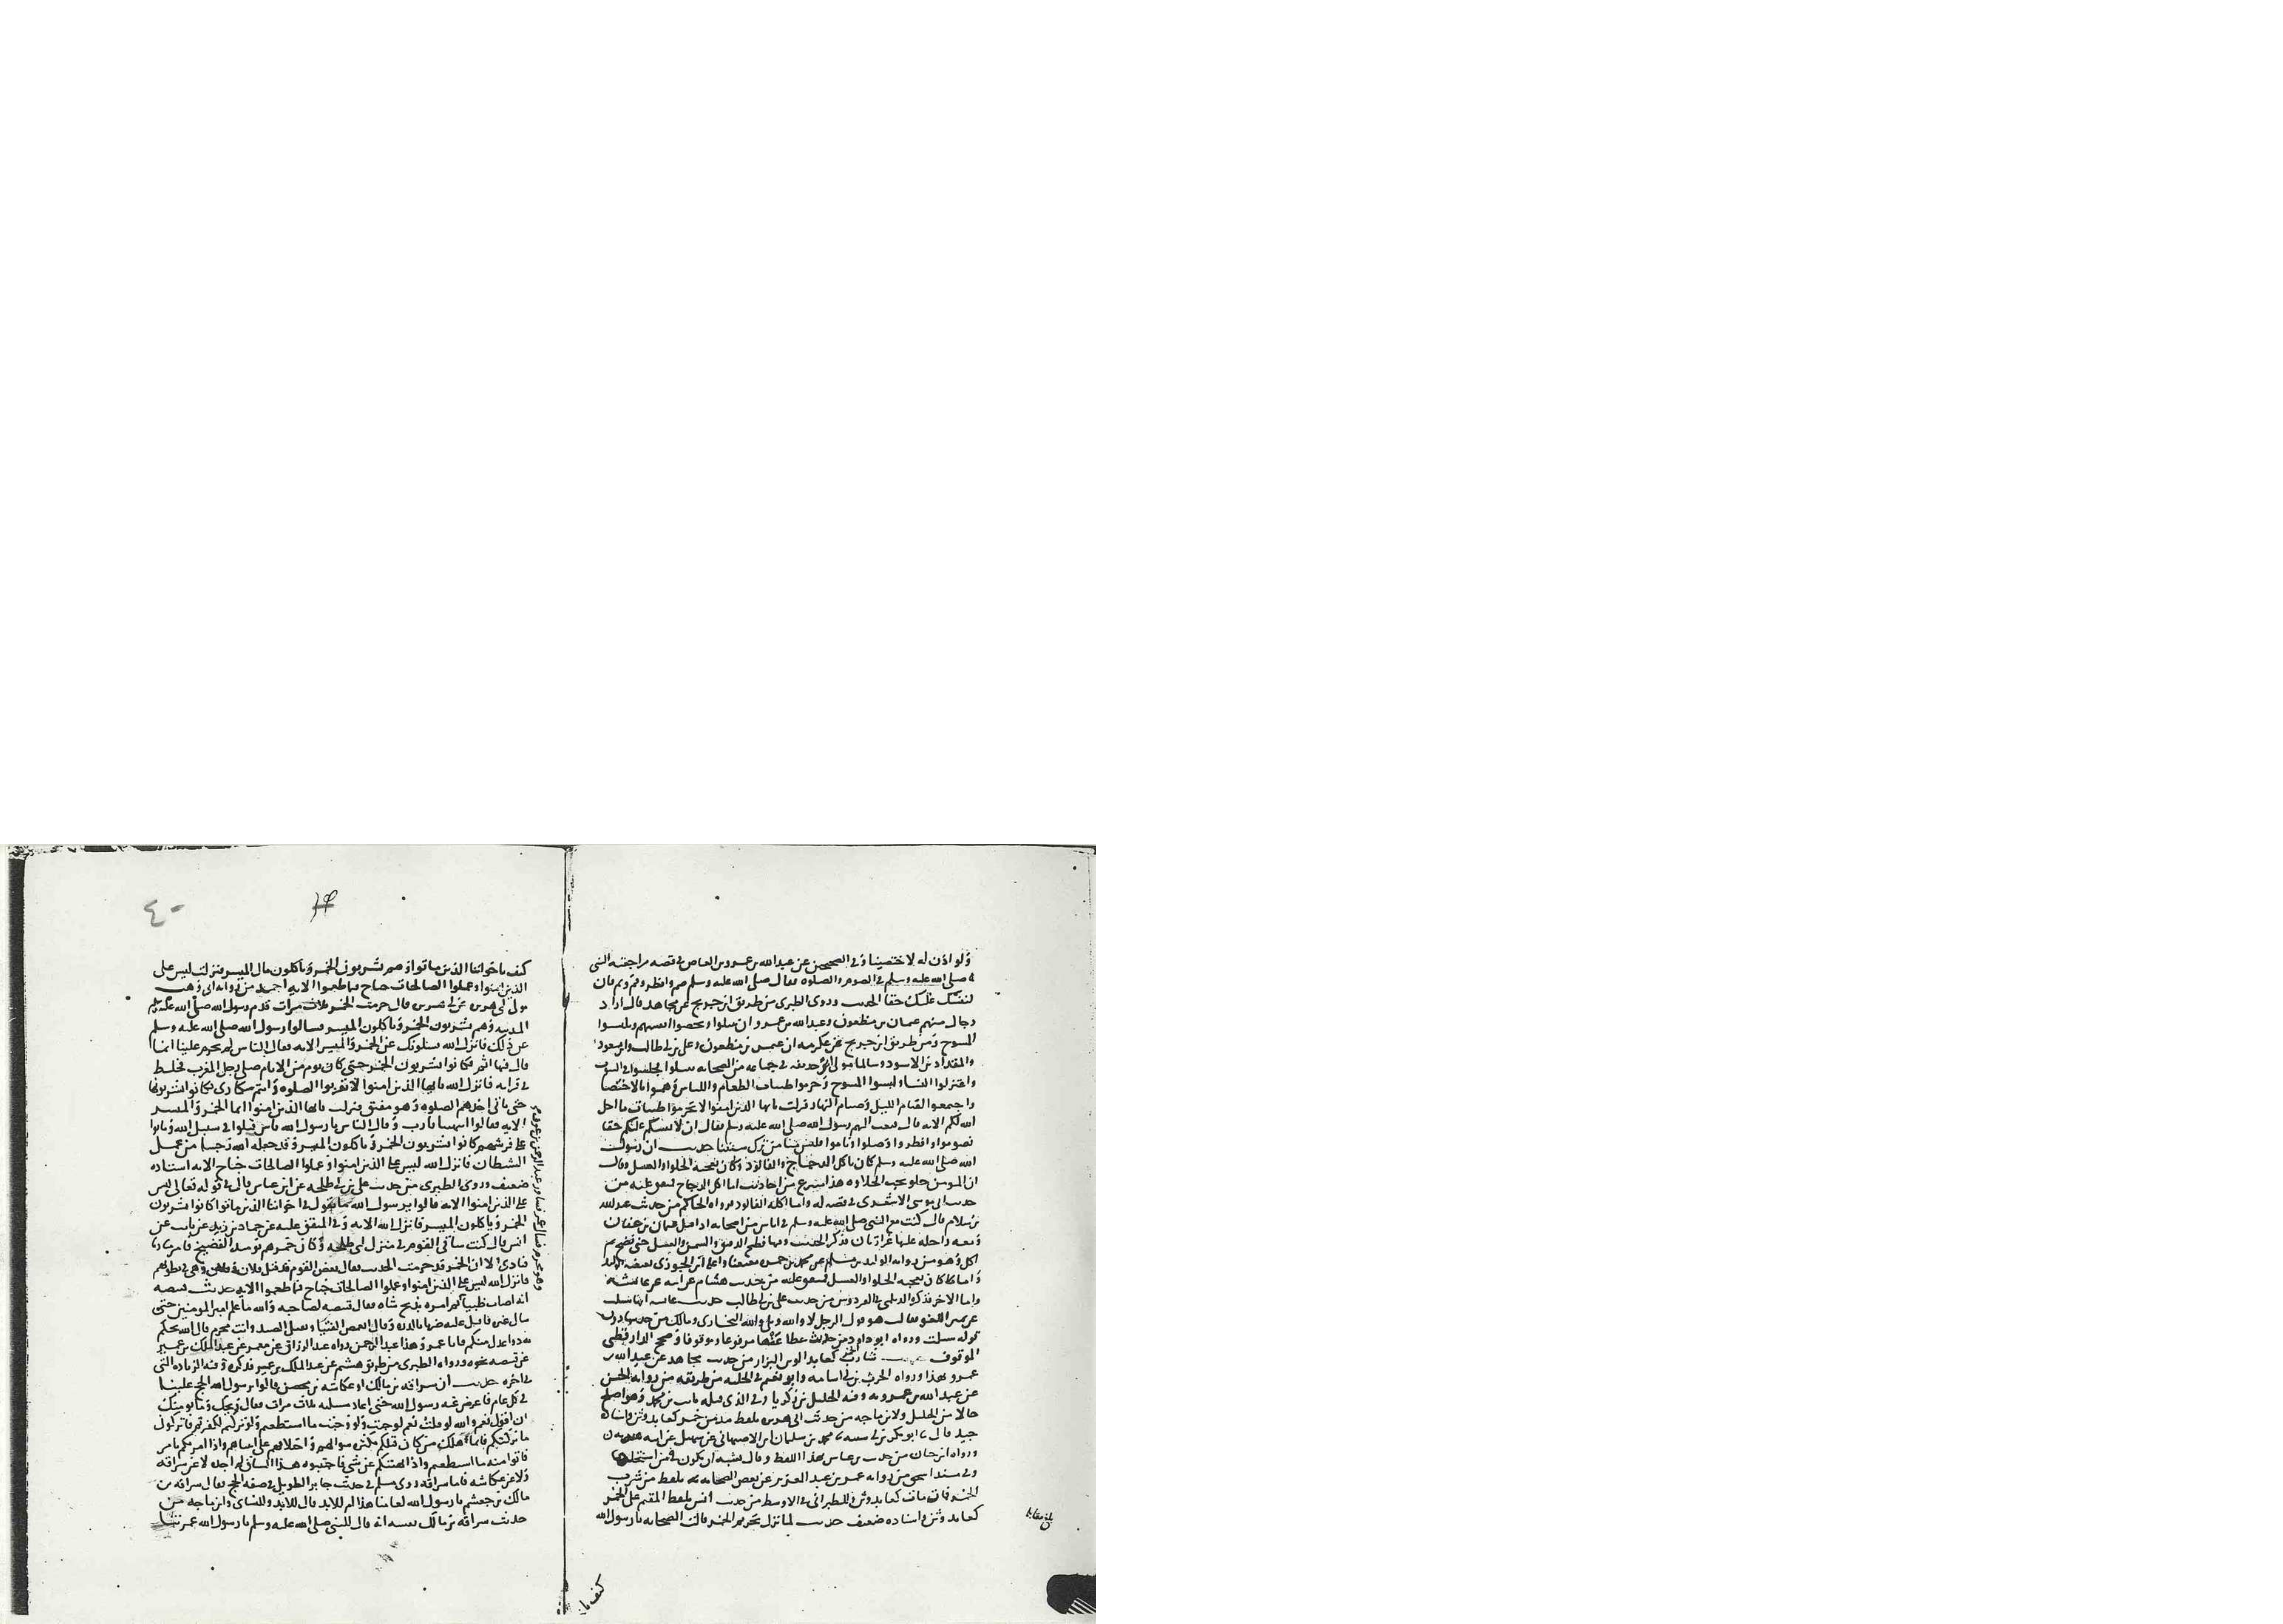 ولو اذن له لاختصينا وفي الصحيحين عن عبدالله بن عمرو بن العاص في قصه مراجعته النبي
صلى الله عليه وسلم في الصوم والصلوه فقال صلى الله عليه وسلم صم وافطر وقم ونم فان
لنفسك عليك حقا الحديث وروى الطبري من طريق ابن جريج عن مجاهد قال اراد
رجال منهم عثمان بن مظعون وعبدالله بن عمرو ان يتبتلوا ويخصوا انفسهم ويلبسوا
المسوح ومن طريق ابن جريج عن عكرمه ان عثمن بن مظعون وعلي بن ابي طالب وابن مسعود
والمقداد بن الاسود وسالما مولى ابي حذيفه في جماعه من الصحابه تبتلوا فجلسوا في البيوت
واعتزلوا النسا ولبسوا المسوح وحرموا طيبات الطعام واللباس وهموا بالاختصا
واجمعوا القيام الليل وصيام النهار فنزلت يايها الذين امنوا لا تحرموا طيبات ما احل
الله لكم الايه قال فبعث اليهم رسول الله صلى الله عليه وسلم فقال ان لانفسكم عليكم حقا
فصوموا وافطروا وصلوا وناموا فليس منا من ترك سنتنا حديث ان رسول
الله صلى الله عليه وسلم كان ياكل الدجاج والفالوذ وكان يعجبه الحلوا والعسل وقال
ان المومن حلو يحب الحلاوه هذا منتزع من احاديث اما اكل الدجاج فمتفق عليه من
حديث ابي موسى الاشعري في قصه له واما اكله الفالوذ فرواه الحاكم من حديث عبدالله
بن سلام قال كنت مع النبي صلى الله عليه وسلم في اناس من اصحابه اذ اقبل عثمان بن عفان
ومعه راحله عليها غرارتان فذكر الحديث وفيها فطبخ الدقيق والسمن والعسل حتى نضج ثم
اكل وهو من روايه الوليد بن مسلم عن محمد بن حمزه
واما كان يعجبه الحلوا والعسل فمتفق عليه من حديث هشام عن ابيه عن عائشه
واما الاخر فذكره الديلمي في الفردوس من حديث علي بن ابي طالب حديث عائشه انها سئلت
عن يمين اللغو فقالت هو قول الرجل لا والله وبلى والله البخاري ومالك
قوله سئلت ورواه ابو داود من حديث عطا عنها مرفوعا وموقوفا وصحح الدارقطني
الموقوف حديث شارب الخمر كعابد الوثن البزار من حديث مجاهد عن عبدالله بن
عمرو بهذا ورواه الحرث بن ابي اسامه وابو نعيم في الحليه من طريقه من روايه الحسن
عن عبدالله بن عمرو به وفيه الخليل بن زكريا وفي الذي قبله ثابت بن محمد وهو اصلح
حالا من الخليل ولابن ماجه من حديث ابي هريره بلفظ مدمن خمر كعابد وثن واسناده
جيد قال ابو بكر بن ابي شيبه محمد بن سلمان ابن الاصبهاني عن سهيل عن ابيه
ورواه ابن حبان من حديث بن عباس بهذا اللفظ وقال يشبه ان يكون فيمن استحلها
وفي مسند اسحق من روايه عمر بن عبد العزيز عن بعض الصحابه بلفظ من شرب
الخمر فمات مات كعابد وثن وللطبراني في الاوسط من حديث انس بلفظ المقيم على الخمر
كعابد وثن واسناده ضعيف حديث لما نزل تحريم الخمر قالت الصحابه يا رسول الله
كيف با
٤٠
كيف باخواننا الذين ماتوا وهم يشربون الخمر وياكلون مال الميسر فنزلت ليس على
الذين امنوا وعملوا الصالحات جناح فيما طعموا الايه احمد من روايه ابي وهب
مولى ابي هريره عن ابي هريره قال حرمت الخمر ثلاث مرات قدم رسول الله صلى الله عليه وسلم
المدينه وهم يشربون الخمر وياكلون الميسر فسالوا رسول الله صلى الله عليه وسلم
عن ذلك فانزل الله يسئلونك عن الخمر والميسر الايه فقال الناس لم يحرم علينا انما
قال فيهما اثم فكانوا يشربون الخمر حتى كان يوم من الايام صلى رجل المغرب فخلط
في قراته فانزل الله يايها الذين امنوا لا تقربوا الصلوه وانتم سكارى فكانوا يشربونها
حتى ياتي احدهم الصلوه وهو مفيق فنزلت يايها الذين امنوا انما الخمر والميسر
الايه فقالوا انتهينا يا رب وقال الناس يا رسول الله ناس قتلوا في سبيل الله وماتوا
على فرشهم كانوا يشربون الخمر وياكلون الميسر وقد جعله الله رجسا من عمل
الشيطان فانزل الله ليس على الذين امنوا وعملوا الصالحات جناح الايه اسناده
ضعيف وروى الطبري من حديث علي بن ابي طلحه عن ابن عباس قال في قوله تعالى ليس
على الذين امنوا الايه قالوا يرسول الله ما نقول في اخواننا الذين ماتوا كانوا يشربون
الخمر وياكلون الميسر فانزل الله الايه وفي المتفق عليه عن حماد بن زيد عن ثابت عن
انس قال كنت ساقي القوم في منزل ابي طلحه وكان خمرهم يومئذ الفضيخ فامر مناديا
فنادى الا ان الخمر قد حرمت الحديث فقال بعض القوم قد قتل فلان وفلان وهي في بطونهم
فانزل الله ليس على الذين امنوا وعملوا الصالحات جناح فيما طعموا الايه حديث قبيصه
انه اصاب ظبيا امره بذبح شاه فقال قبيصه لصاحبه والله ما علم امير المومنين حتى
سال غيره فاقبل عليه ضربا بالدره وقال اتغمص الفتيا وتقتل الصيد وانت محرم قال الله يحكم
به ذوا عدل منكم فانا عمر وهذا عبد الرحمن رواه عبد الرزاق عن معمر عن عبد الملك بن عمير
عن قبيصه نحوه ورواه الطبري من طريق هشيم عن عبد الملك بن عمير فذكره وفيه الزياده التي
في اخره حديث ان سراقه بن مالك او عكاشه بن محصن قال يا رسول الله الحج علينا
في كل عام فاعرض عنه رسول الله حتى اعاد مسلته ثلاث مرات فقال ويحك وما يومنك
ان اقول نعم والله لو قلت نعم لوجبت ولو وجبت ما استطعتم ولو تركتم لكفرتم فاتركوني
ما تركتكم فانما هلك من كان قبلكم بكثره سوالهم واختلافهم على انبيائهم واذا امرتكم بامر
فاتوا منه ما استطعتم واذا نهيتكم عن شي فاجتنبوه هذا السياق لم اجده لا عن سراقه
ولا عن عكاشه فاما سراقه فروى مسلم في حديث جابر الطويل في صفه الحج فقال سراقه بن
مالك بن جعشم يا رسول الله لعامنا هذا ام للابد قال للابد وللنساي وابن ماجه من
حديث سراقه بن مالك نفسه انه قال للنبي صلى الله عليه وسلم يا رسول الله عمرتنا